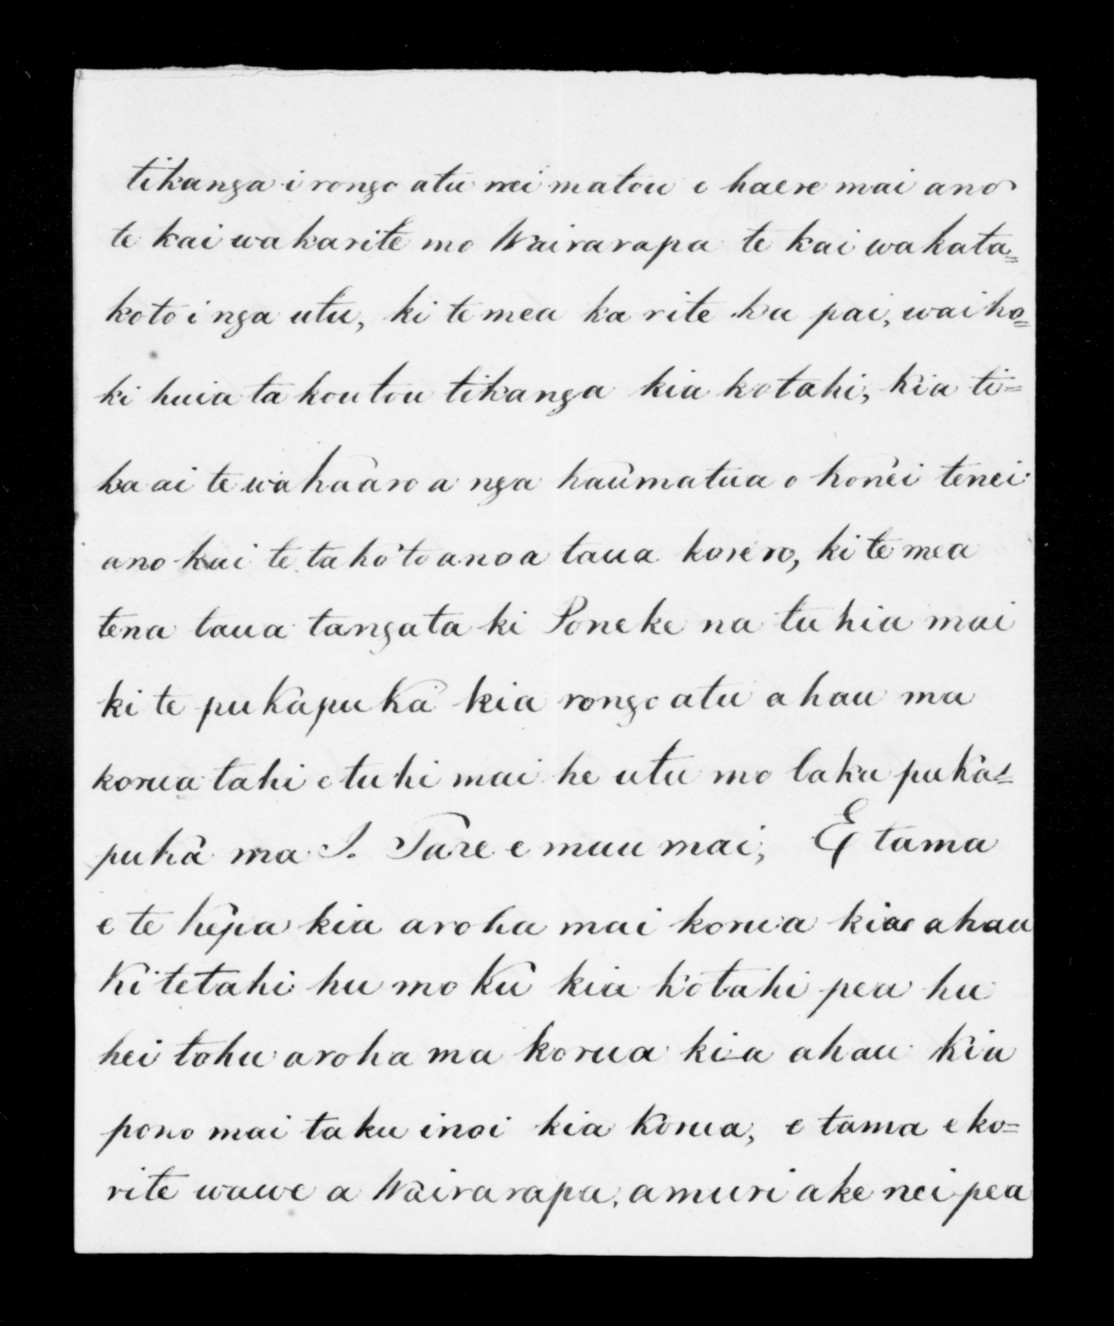 tikanga i rongo atu nei matou e haere mai ano
te kai wakarite mo Wairarapa te kai wakata=
koto i nga utu, ki te mea ka rite ka pai, waiho=
ki huia ta koutou tikanga kia kotahi, kia ti=
ka ai te wahaaro a nga haumatua o konei tenei
ano kai te takoto ano a taua korero, ki te mea
tena taua tangata ki Poneke na tuhia mai
ki te pukapuka kia rongo atu ahau ma
korua tahi e tuhi mai he utu mo taku puka=
puka ma I. Tare e mau mai; E tama
e te hepa kia aroha mai korua kia ahau
ki tetahi hu moku kia kotahi pea hu
hei tohu aroha ma korua kia ahau kia
pono mai taku inoi kia korua, e tama e ko=
rite wawe a Wairarapa, amuri ake nei pea